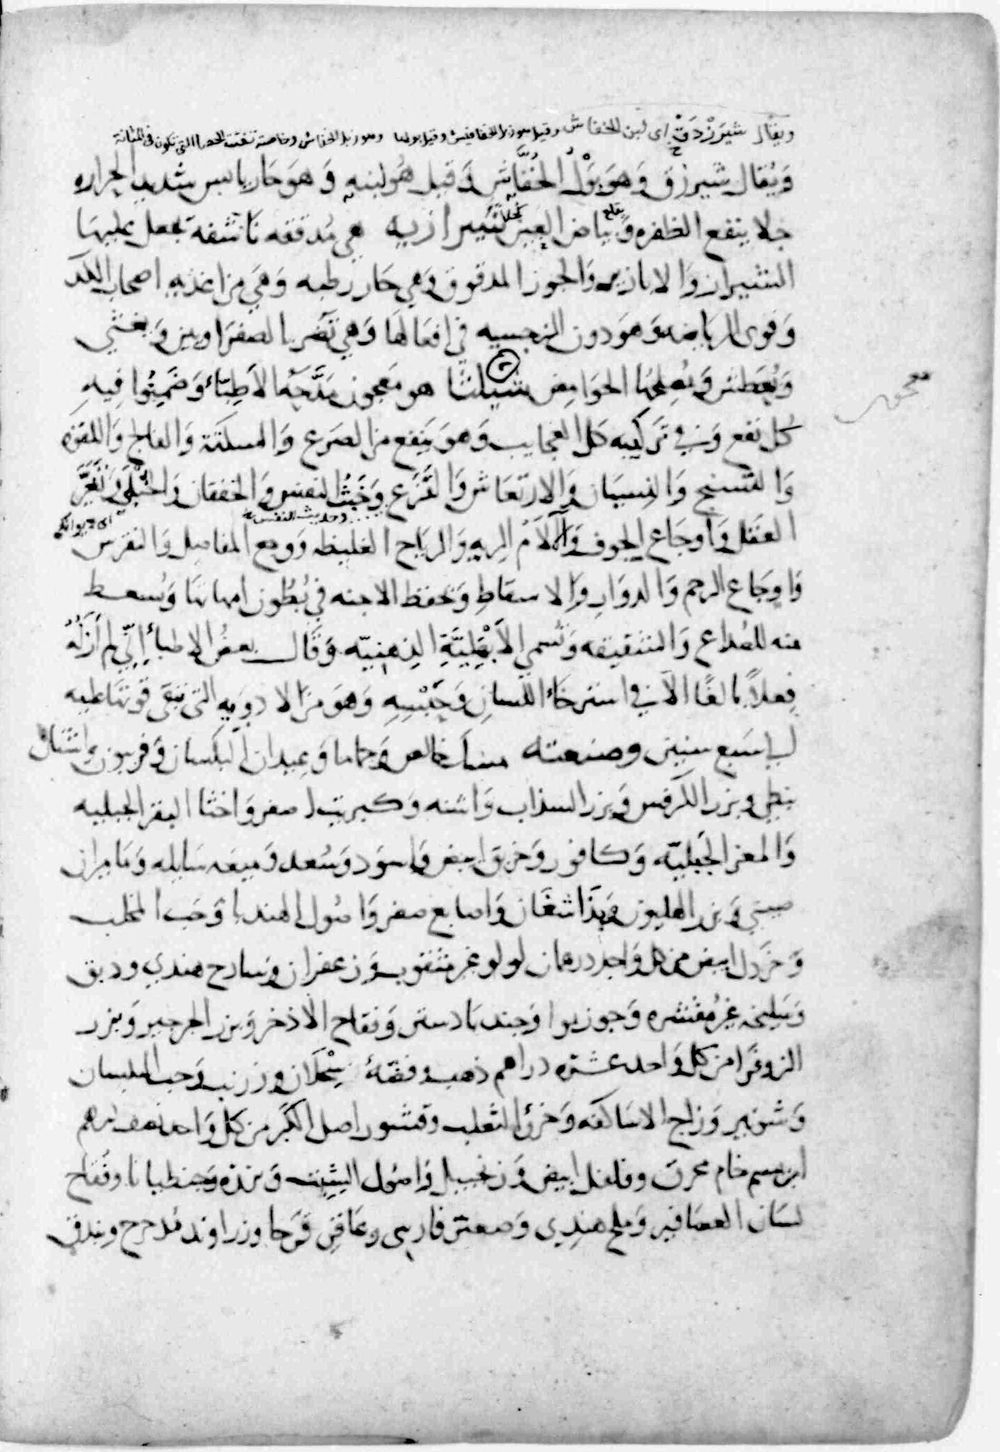 ويقال شيرزدق اى لبن الخفاش وقيل هو زبل الخفافيش وقيل بولها وهو زبل الخفاش وخاصته تفتت الحصا التي تكون في المثانة
وَيُقال شيرزق وَهوَ بَوْلُ الخُفَّاش وَقيل هُو لبنه وَهوَ حار يابس شديد الحراره
جلا ينفع الظفره وَبياض العين شيراز يه هي مُدققه ناشفه تجعل عليها
الشيراز وَالابازير وَالجوز المدقوق وَهي حَار رطبه وَهي من اغذيه اصحاب الكد
وَقوى الرياضه وَهوَ دون النرجسيه في افعالها وَهي تضر بالصفراويين وَتغثي
وَتُعطش وَيُصلحها الحوامض شيلثا هو مَعجون مَدَحَهُ الأطِبّاء وَضَمِنُوا فيه
معجون
كل نفع وَفي تركيبه كل العجايب وَهوَ ينفع من الصرع وَالسكتة وَالفالج وَاللقوه
وَالتشنج وَالنِسيَان وَالارتعاش وَالفزع وَخَبْثُ النفس وَالخفقان
وحديث النفس
العقل وَأوجَاع الجوف وَآلام الريه وَالرياح الغليظه ووجع المفاصل وَالنقرس
وَاوجَاع الرحم وَالدوار وَالاسقاط وَيحفظ الاجنه في بُطُون امهاتها وَيُسعط
منه للصُداع وَالشقيقه وَتُسمي الذهنيّه وَقَال بعضُ الاطباء إنّي لم أرَ لَهُ
فِعلاً بالغًا الاّ في استرخَاء اللسان وَحَبْسِهِ وَهوَ من الادويه التى تبقى قوتها طيبه
الى سبع سنين وصنعته مسك خالص وحماما وعيدان البلسان وَفربيون مثقال
بطي وبزر الكرفس وَبزر السذاب وَاشنه وَكبريت اصفر وَاخثا البقر الجبليه
وَالمعز الجَبليّه وَكافور وَخربق ابيض وَاسوَد وَسُعد وَميعه سايله وَمَاميران
صيني وَبزر الهليون وَبذاشغَان وَاصابع صفر وَاصُول الهندبا وَحب المحلب
وَخردل ابيض من كل وَاحد درهمان لولو غير مثقوب وَزعفران وَسادج هندي ودبق
وَسَليخه غير مُقشره وَجوزبوا وَجندبادستر وَفقاح الاذخر وَبزر الجرجير وَبزر
الزوفرا من كل وَاحد عشرة دراهم ذهب وفضّة يُسْحَلان وزرنب وَحب البلسان
وَشونيز وَزاج الاساكفه وَخرؤ الثعلب وقشور اصل الكَبَر من كل وَاحد نصف درهم
ابريسم خام محرق وفلفل ابيض وَزنجبيل وَاصُول الشِبِت وَجنطيانا وفقاح
لسَان العصَافير وَملح هندي وَصعتر فارسي وعاقر قرحا وزراوند مُدحرج وبندقي